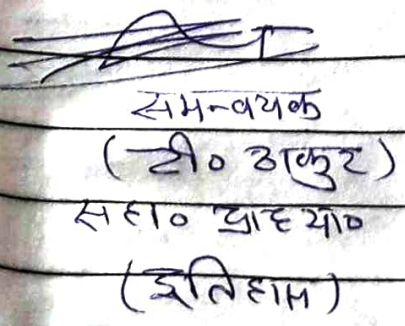 समन्वयक
(टी० ठाकुर)
सहा० प्राध्या०
(इतिहास)